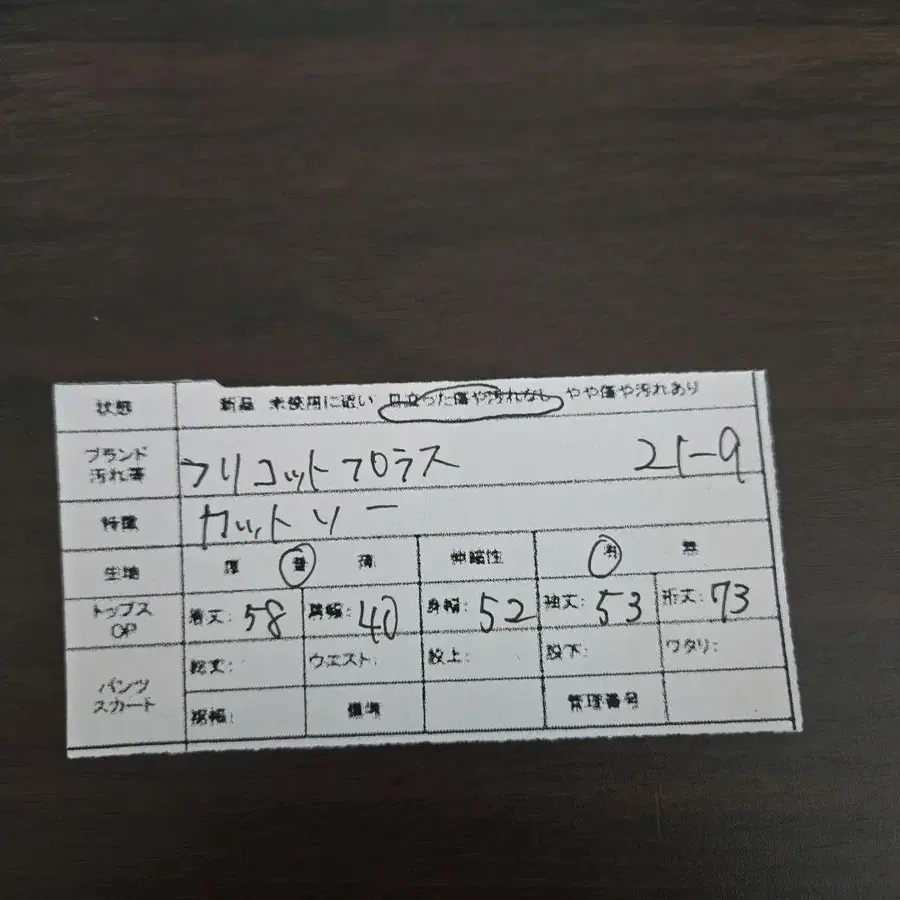 状態 新品 未使用に近い 目立った傷や汚れなし やや傷や汚れあり
ブランド
汚れ等 フリコットフロラス 21-9
特徴 カットソー
生地 厚 普 薄 伸縮性 有 無
トップス
OP 着丈: 58 肩幅: 40 身幅: 52 袖丈: 53 裄丈: 73
パンツ
スカート 総丈: ウエスト: 股上: 股下: ワタリ:
裾幅: 備考 管理番号